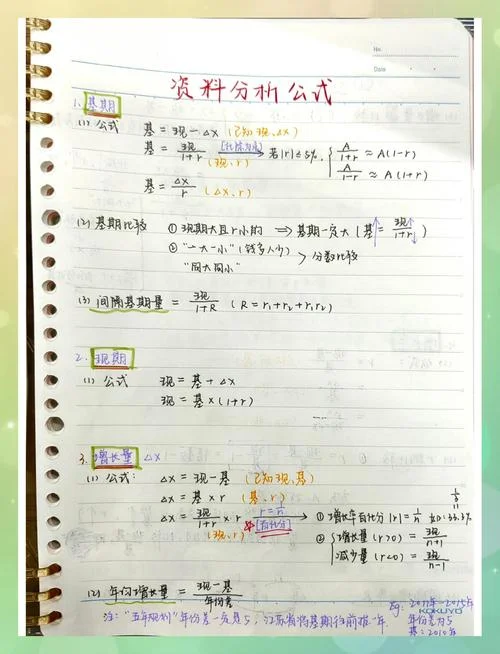 No.
Date
资料分析公式
1. 基期
(1) 公式 基 = 现 - △x (已知现,△x)
基 = 现/1+r [化除为乘] 若|r| ≤ 5%, { A/1+r ≈ A(1-r)
(现,r) A/1-r ≈ A(1+r)
基 = △x/r (△x,r)
(2) 基期比较 ① 现期大且r小的 ⇒ 基期一定大 (基↑ = 现↑/1+r↓)
② "一大一小" (钱多人少) > 分数比较
"同大同小"
(3) 间隔基期量 = 现/1+R (R = r1+r2+r1r2)
2. 现期
(1) 公式 现 = 基 + △x
现 = 基 × (1+r)
3. 增长量 △x
(1) 公式: △x = 现 - 基 (已知现,基)
△x = 基 × r (基,r)
△x = 现/1+r × r r = 1/n [百化分] ① 增长率百化分 |r| = 1/n 如: 33.3%
(现,r) ② { 增长量 (r>0) = 现/n+1
减少量 (r<0) = 现/n-1
(2) 年均增长量 = 现-基/年份差
Eg: 2011年-2015年
KOKUYO
年份差为5
注: "五年规划" 年份差一定是5, 江苏省考基期往前推一年
基: 2010年